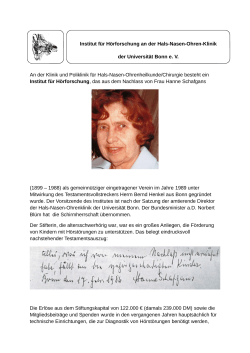 Institut für Hörforschung an der Hals-Nasen-Ohren-Klinik
der Universität Bonn e. V.
An der Klinik und Poliklinik für Hals-Nasen-Ohrenheilkunde/Chirurgie besteht ein
Institut für Hörforschung, das aus dem Nachlass von Frau Hanne Schafgans
(1899 – 1988) als gemeinnütziger eingetragener Verein im Jahre 1989 unter
Mitwirkung des Testamentsvollstreckers Herrn Bernd Henkel aus Bonn gegründet
wurde. Der Vorsitzende des Institutes ist nach der Satzung der amtierende Direktor
der Hals-Nasen-Ohrenklinik der Universität Bonn. Der Bundesminister a.D. Norbert
Blüm hat die Schirmherrschaft übernommen.
Der Stifterin, die altersschwerhörig war, war es ein großes Anliegen, die Förderung
von Kindern mit Hörstörungen zu unterstützen. Das belegt eindrucksvoll
nachstehender Testamentsauszug:
Alles, was ich von meinem Nachlaß
habe fällt an die Kinder.
Bonn den 17. 1986 Hanne Schafgans
Die Erlöse aus dem Stiftungskapital von 122.000 € (damals 239.000 DM) sowie die
Mitgliedsbeiträge und Spenden wurde in den vergangenen Jahren hauptsächlich für
technische Einrichtungen, die zur Diagnostik von Hörstörungen benötigt werden,